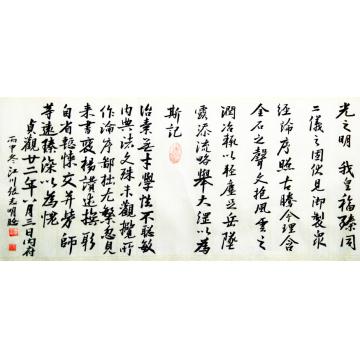 光之明 我皇福臻同
二儀之固伏見御製眾
經論序照古騰今理含
金石之聲文抱風雲之
潤治輒以輕塵足岳墜
露添流略舉大綱以為
斯記
治素無才學性不聰敏
內典諸文殊未觀攬所
作論序鄙拙尤繁忽見
來書褒揚讚述撫躬
自省慚悚交并勞師
等遠臻深以為愧
貞觀廿二年八月三日內府
丙申冬江川張志明臨